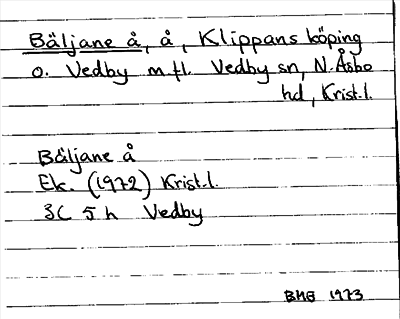 Bäljane å, å, Klippans köping
o. Vedby m fl. Vedby sn, N. Åsbo
hd, Krist.l.
Bäljane å
Ek. (1972) Krist.l.
3C 5h Vedby
BMG 1973